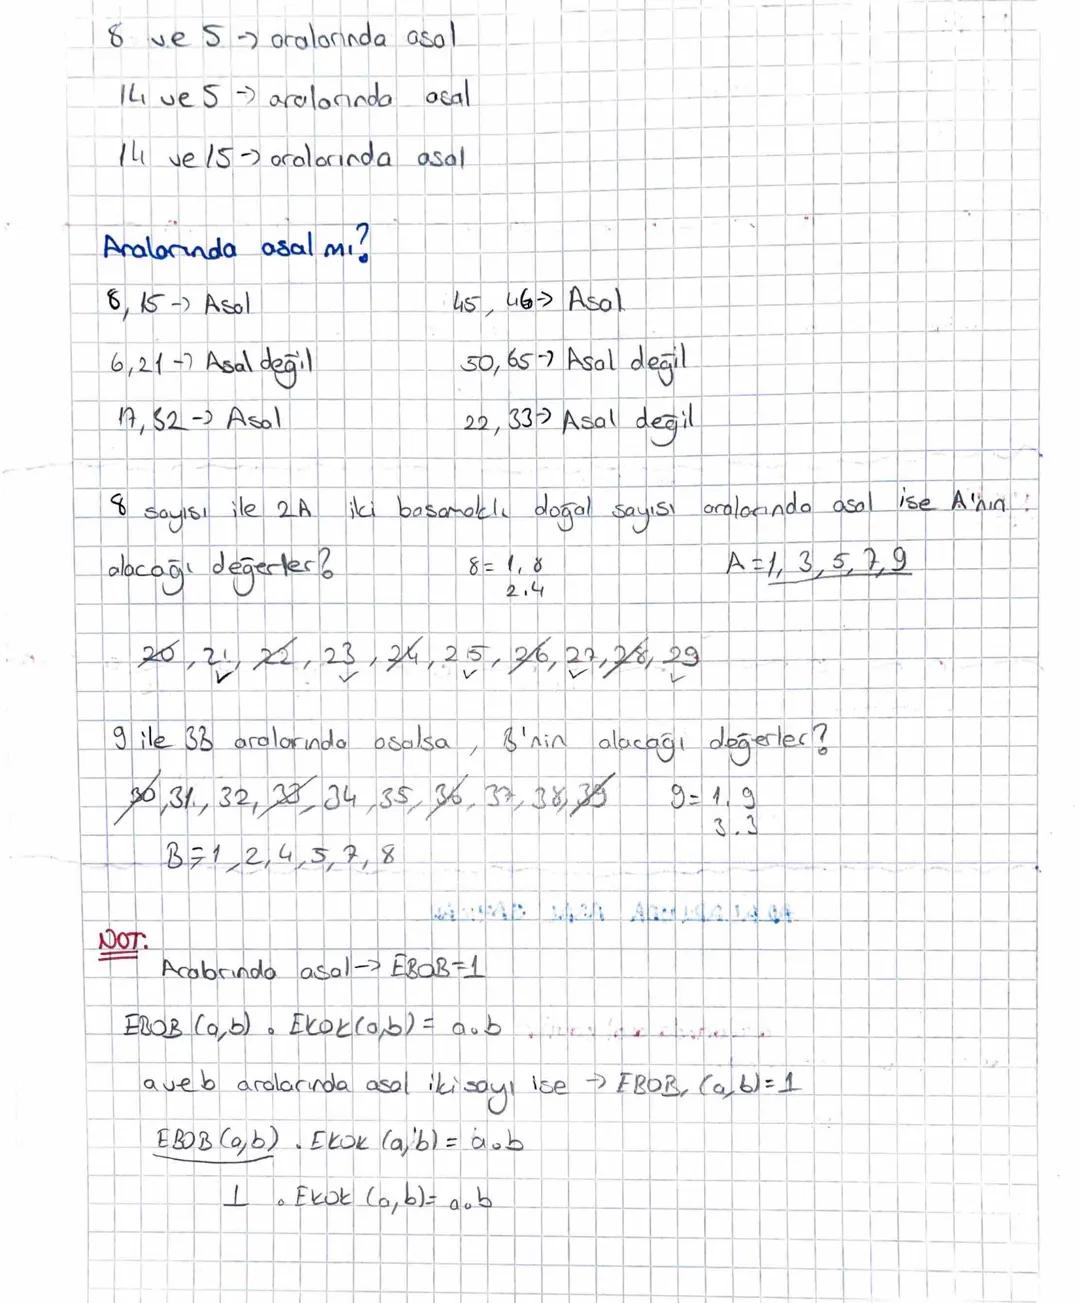 8 ve 5 → aralarında asal
14 ve 5 → aralarında asal
14 ve 15 → aralarında asal
Aralarında asal mı?
8, 15 → Asal
45, 46 → Asal
6, 21 → Asal değil
50, 65 → Asal değil
17, 32 → Asal
22, 33 → Asal değil
8 sayısı ile 2A iki basamaklı doğal sayısı aralarında asal ise A'nın
alacağı değerler?
8 = 1.8
2.4
A = 1, 3, 5, 7, 9
20, 21, 22, 23, 24, 25, 26, 27, 28, 29
9 ile 3B aralarında asalsa, B'nin alacağı değerler?
30, 31, 32, 33, 34, 35, 36, 37, 38, 39
9 = 1.9
3.3
B = 1, 2, 4, 5, 7, 8
NOT:
Aralarında asal → EBOB = 1
EBOB (a,b) . EKOK (a,b) = a.b
a ve b aralarında asal iki sayı ise → EBOB (a,b) = 1
EBOB (a,b) . EKOK (a,b) = a.b
1 . EKOK (a,b) = a.b